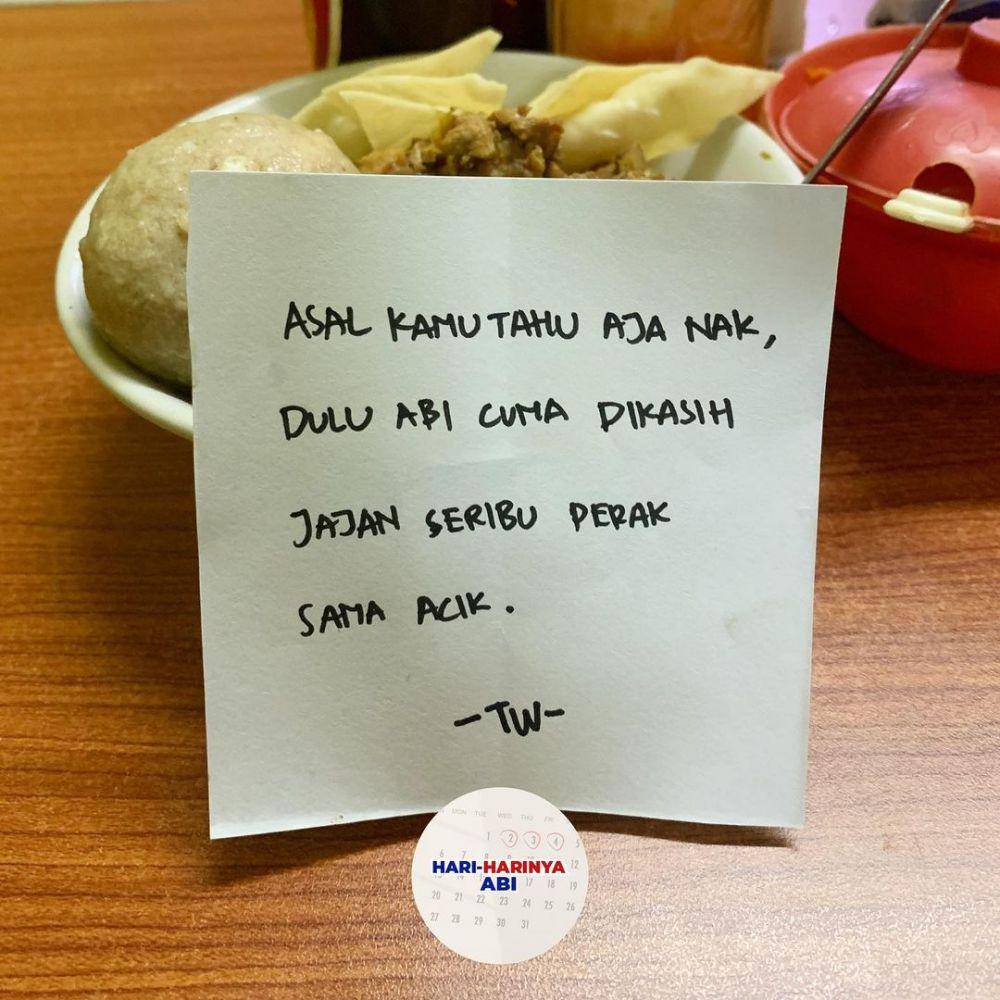 ASAL KAMU TAHU AJA NAK,
DULU ABI CUMA DIKASIH
JAJAN SERIBU PERAK
SAMA ACIK.
-TW-
MON TUE WED THU FRI
1 2 3 4 5
6 7 8 9 12
17 18 19
20 21 22 23 24 25 26
27 28 29 30 31
HARI-HARINYA
ABI